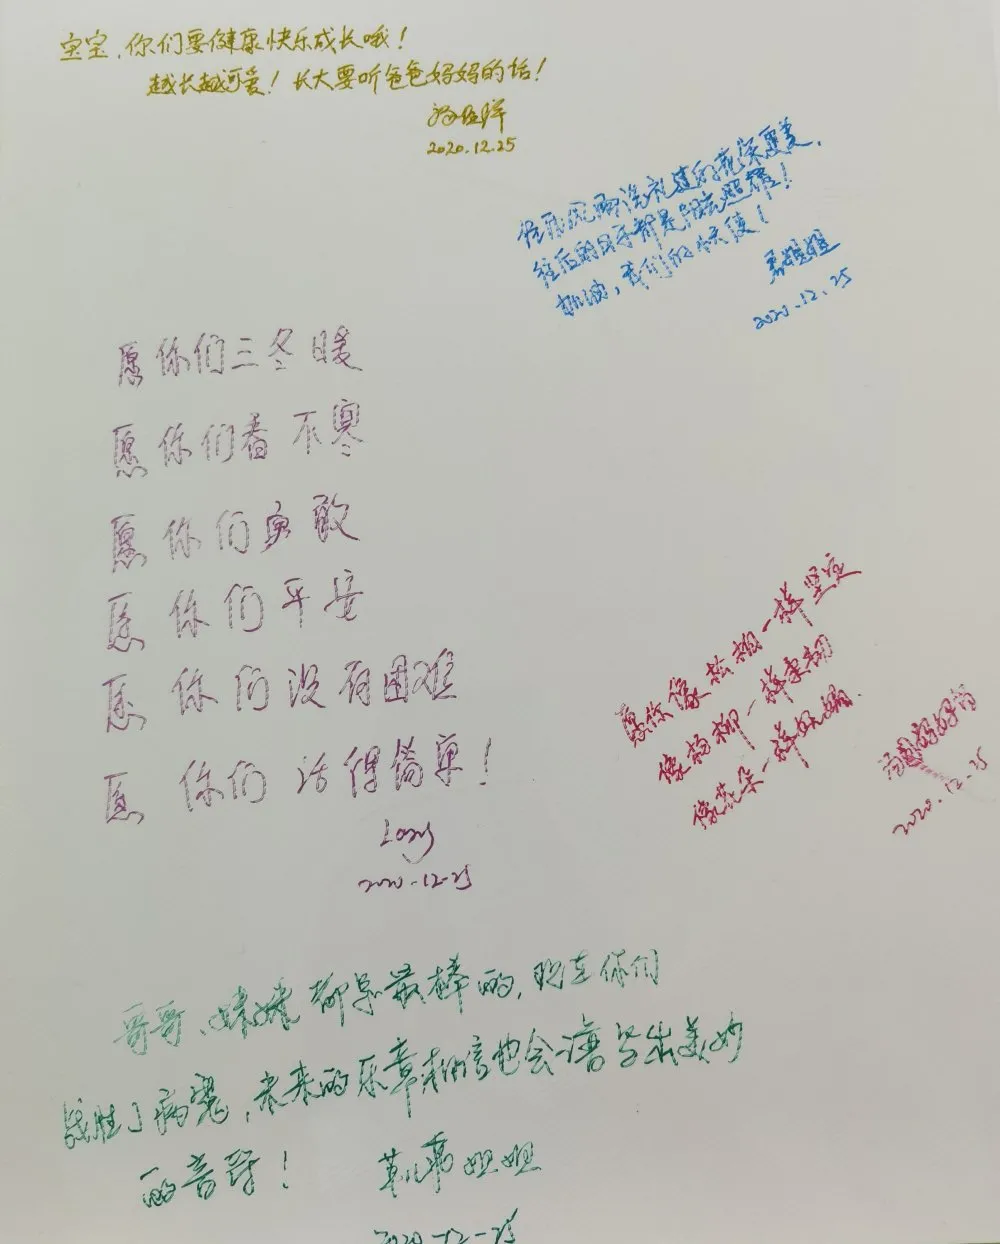 宝宝，你们要健康快乐成长哦！
越长越可爱！长大要听爸爸妈妈的话！
2020.12.25
经历风雨洗礼过的花朵更美，
往后的日子都是阳光照耀！
加油，我们的小天使！
姐姐
2020.12.25
愿你们三冬暖
愿你们春不寒
愿你们勇敢
愿你们平安
愿你们没有困难
愿你们活得简单！
Long
2020-12-25
愿你像松柏一样坚定
像杨柳一样柔韧
像花朵一样妩媚.
2020.12.25
哥哥、妹妹都是最棒的，现在你们
战胜了病魔，未来的乐章相信也会谱写出美妙
的音符！
姐姐
2020-12-25